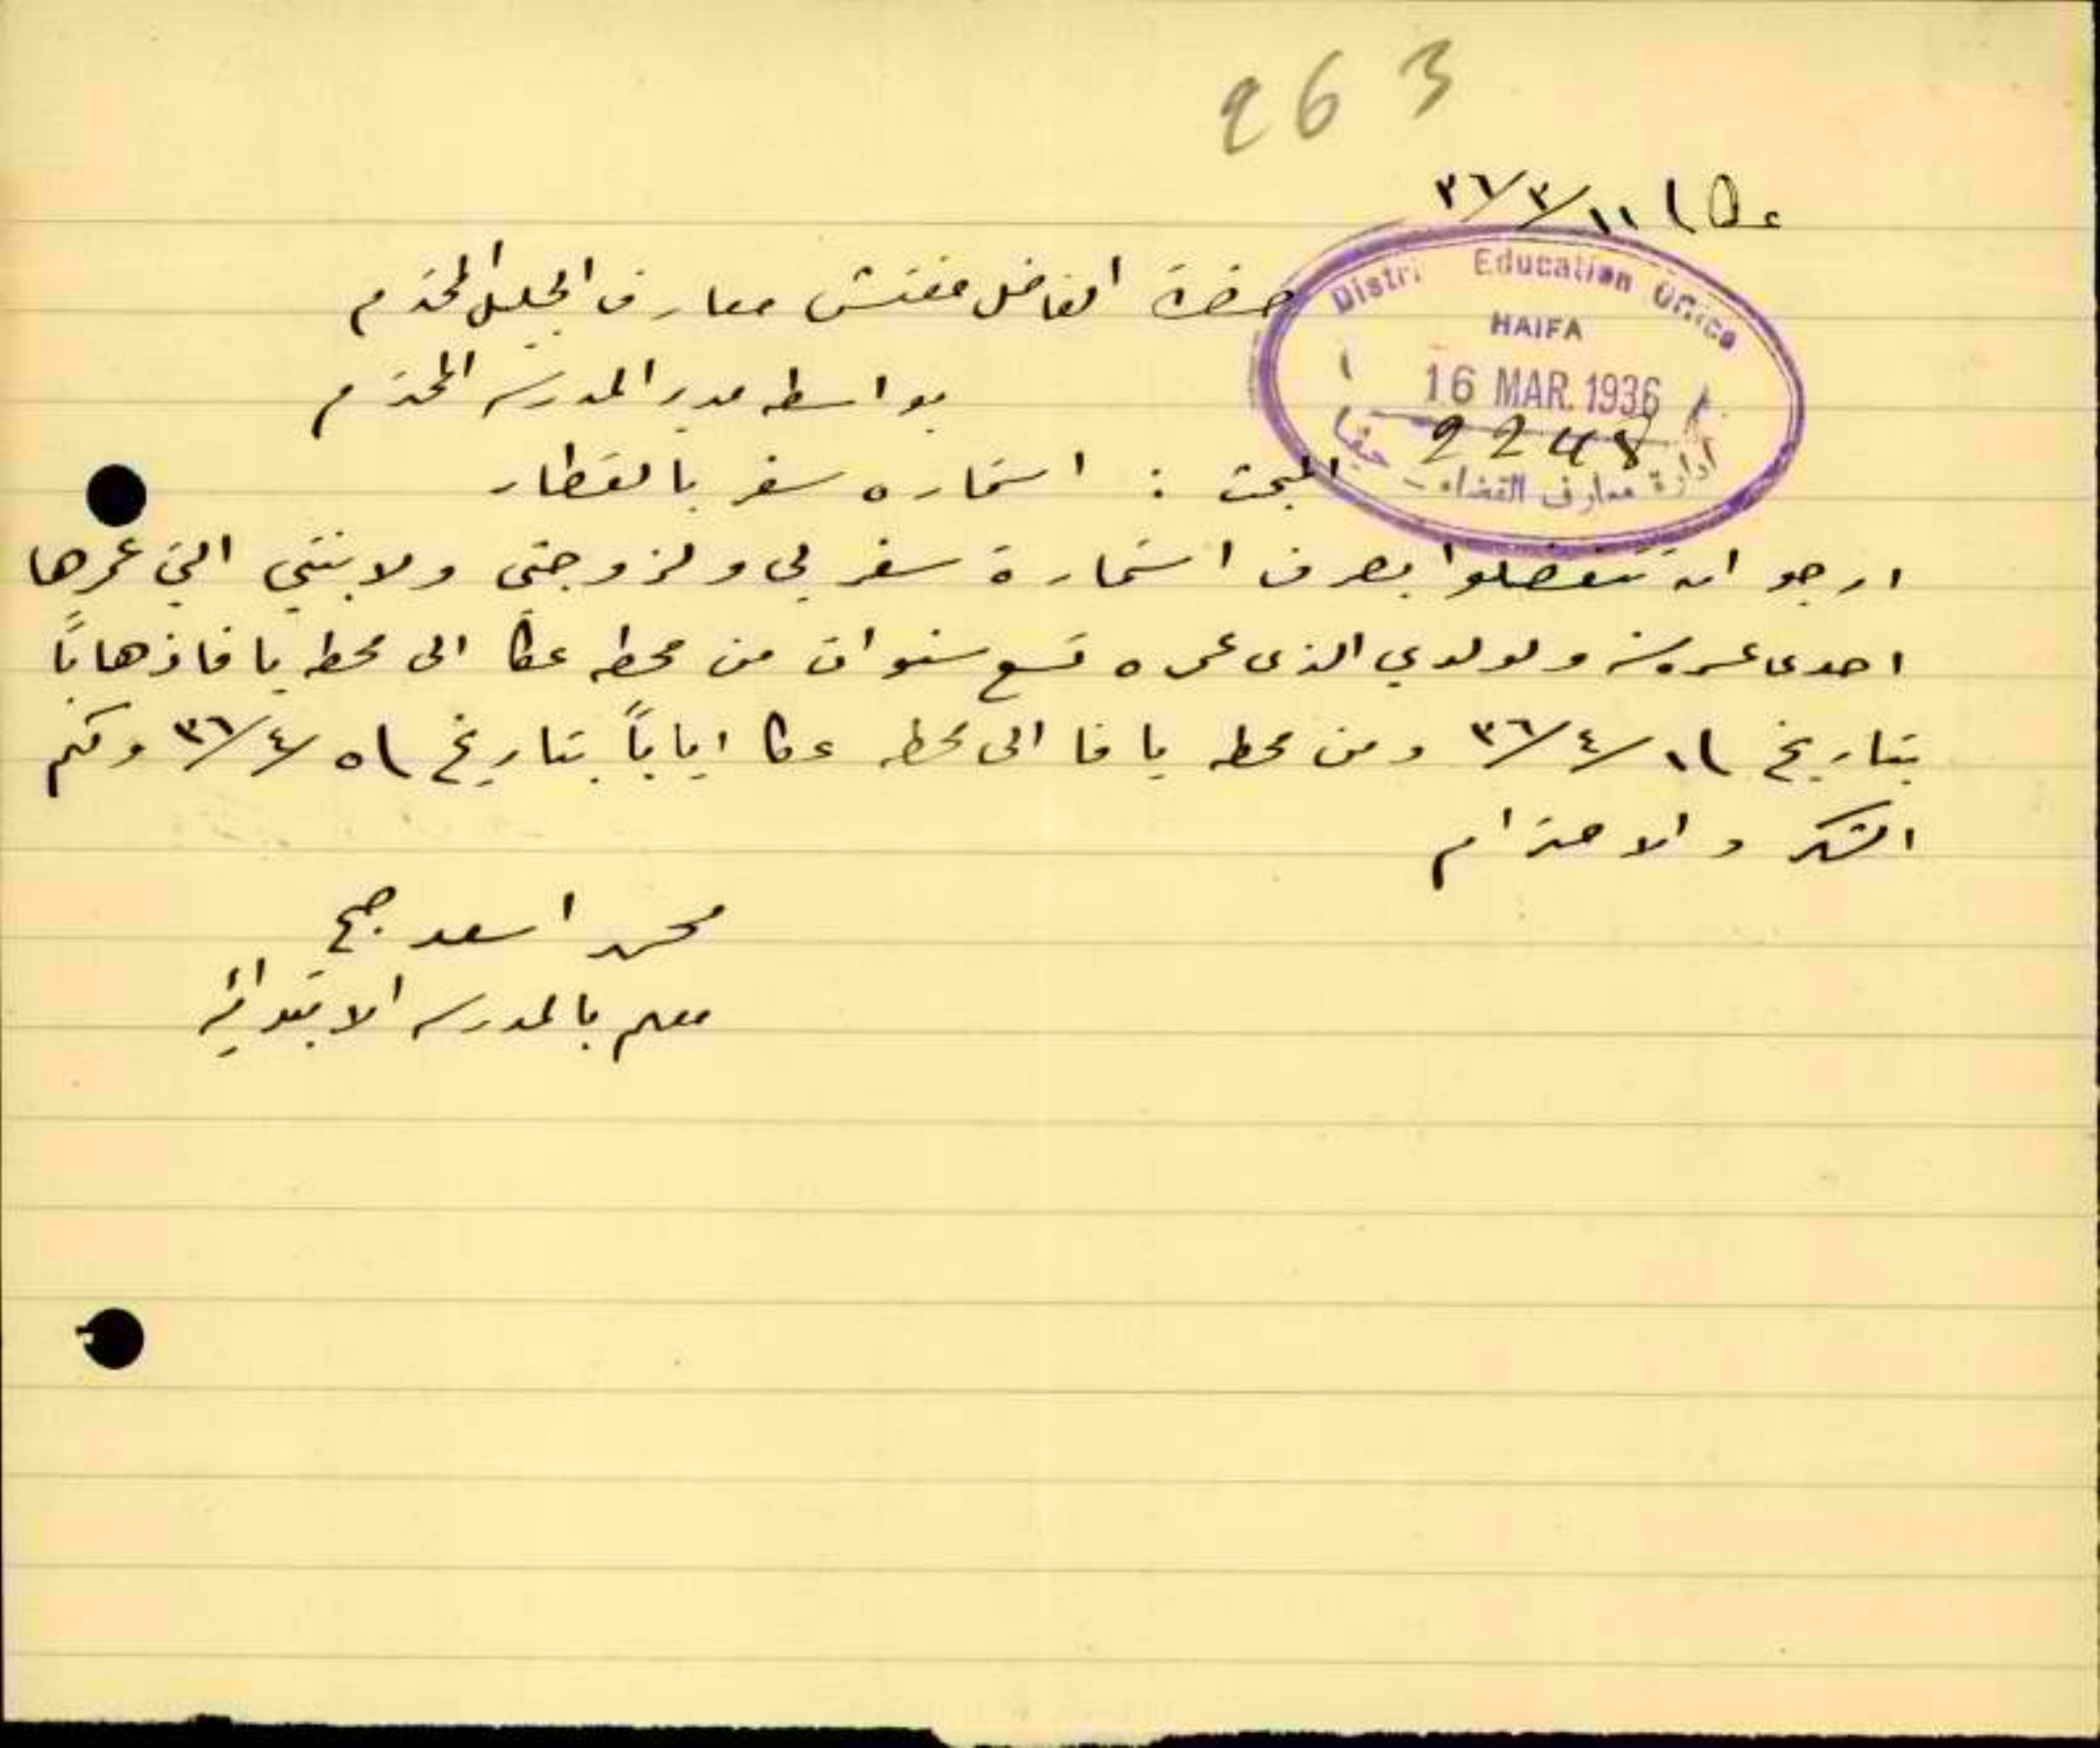 263
عكا ١١/٣/٣٦
District Education Office
HAIFA
16 MAR. 1936
2248
ادارة معارف القضاء - حيفا
حضرة الفاضل مفتش معارف الجليل المحترم
بواسطه مدير المدرسه المحترم
المبحث : استماره سفر بالقطار
ارجو ان تتفضلوا بصرف استمارة سفر لي ولزوجتي ولابنتي التي عمرها
احدى عشرة سنه ولولدي الذى عمره تسع سنوات من محطه عكا الى محطه يافا ذهاباً
بتاريخ ٣٦/٤/١ ومن محطه يافا الى محطه عكا اياباً بتاريخ ٣٦/٤/٥ ولكم
الشكر والاحترام
محمد اسعد
معلم بالمدرسه الابتدائيه